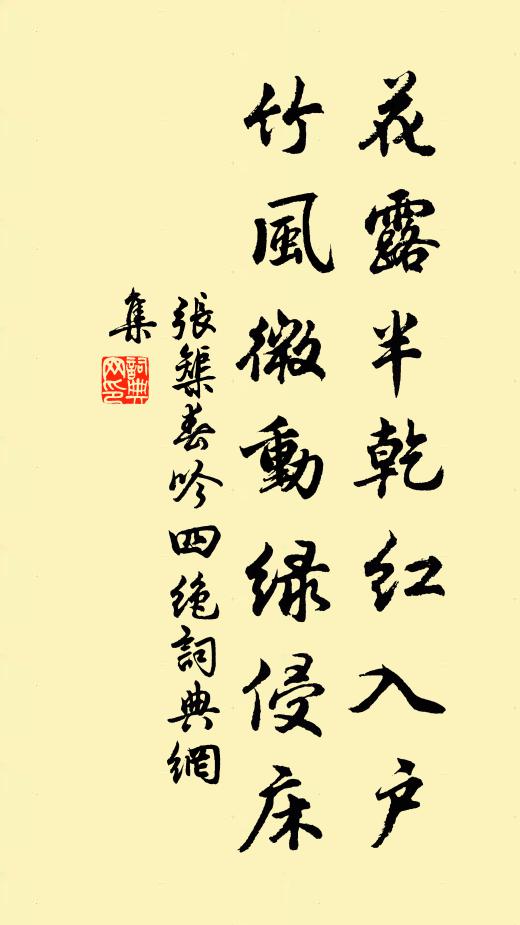 花露半乾紅入户
竹風微動緑侵床
張榘春吟四絶詞典網
集
詞典
网印